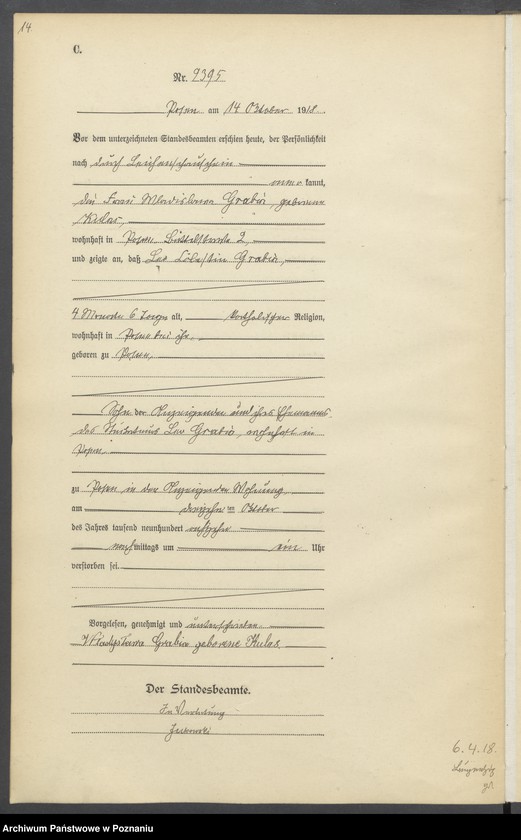 14
C.
Nr. 9395
Posen am 14 Oktober 1918.
Vor dem unterzeichneten Standesbeamten erschien heute, der Persönlichkeit
nach durch Leichenschauschein
kannt,
die Frau Wladislawa Grabia, geborene
Kulas,
wohnhaft in Posen 2,
und zeigte an, daß Leo Grabia,
4 Monate 6 Tage alt, katholischer Religion,
wohnhaft in Posen bei ihr,
geboren zu Posen,
Sohn der Anzeigenden und ihres Ehemanns
des Leo Grabia, wohnhaft in
Posen
zu Posen in der Anzeigenden Wohnung,
am dreizehn ten Oktober
des Jahres tausend neunhundert achtzehn
nachmittags um ein Uhr
verstorben sei.
Vorgelesen, genehmigt und unterschrieben
Władysława Grabia geborene Kulas
Der Standesbeamte.
In Vertretung
6.4.18.
Archiwum Państwowe w Poznaniu